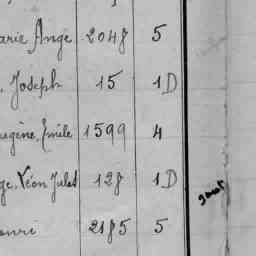 arie Ange 2048 5
. Joseph 15 1D
ugène, Emile 1599 4
ge, Léon Jules 128 1D
enri 2185 5